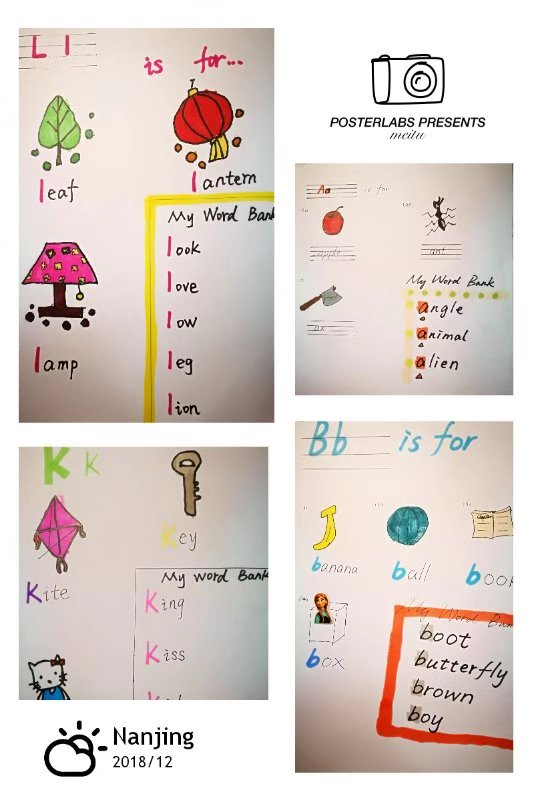 L l
is for...
leaf
lantern
My Word Bank
look
love
low
lamp
leg
lion
POSTERLABS PRESENTS
meitu
Aa is for
apple
ant
ax
My Word Bank
angle
animal
alien
K K
Key
Kite
My word Bank
King
Kiss
Bb is for
banana
ball
book
box
My Word Bank
boot
butterfly
brown
boy
Nanjing
2018/12